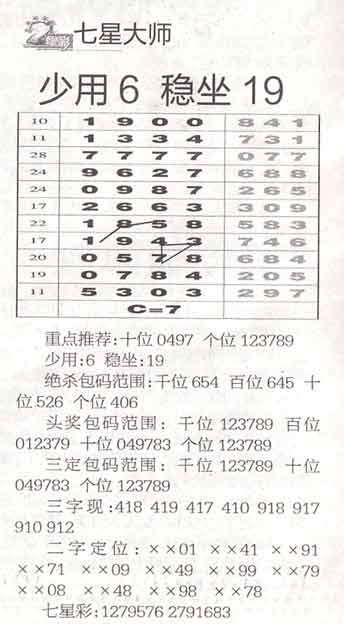 七星大师
少用6 稳坐19
10 1 9 0 0 8 4 1
11 1 3 3 4 7 3 1
28 7 7 7 7 0 7 7
24 9 6 2 7 6 8 8
24 0 9 8 7 2 6 5
17 2 6 6 3 3 0 9
22 1 8 5 8 5 8 3
17 1 9 4 3 7 4 6
20 0 5 7 8 6 8 4
19 0 7 8 4 2 0 5
11 5 3 0 3 2 9 7
C=7
重点推荐:十位0497 个位123789
少用:6 稳坐:19
绝杀包码范围:千位654 百位645 十
位526 个位406
头奖包码范围: 千位123789 百位
012379 十位049783 个位123789
三定包码范围: 千位123789 十位
049783 个位123789
三字现:418 419 417 410 918 917
910 912
二字定位: ××01 ××41 ××91
××71 ××09 ××49 ××99 ××79
××08 ××48 ××98 ××78
七星彩:1279576 2791683